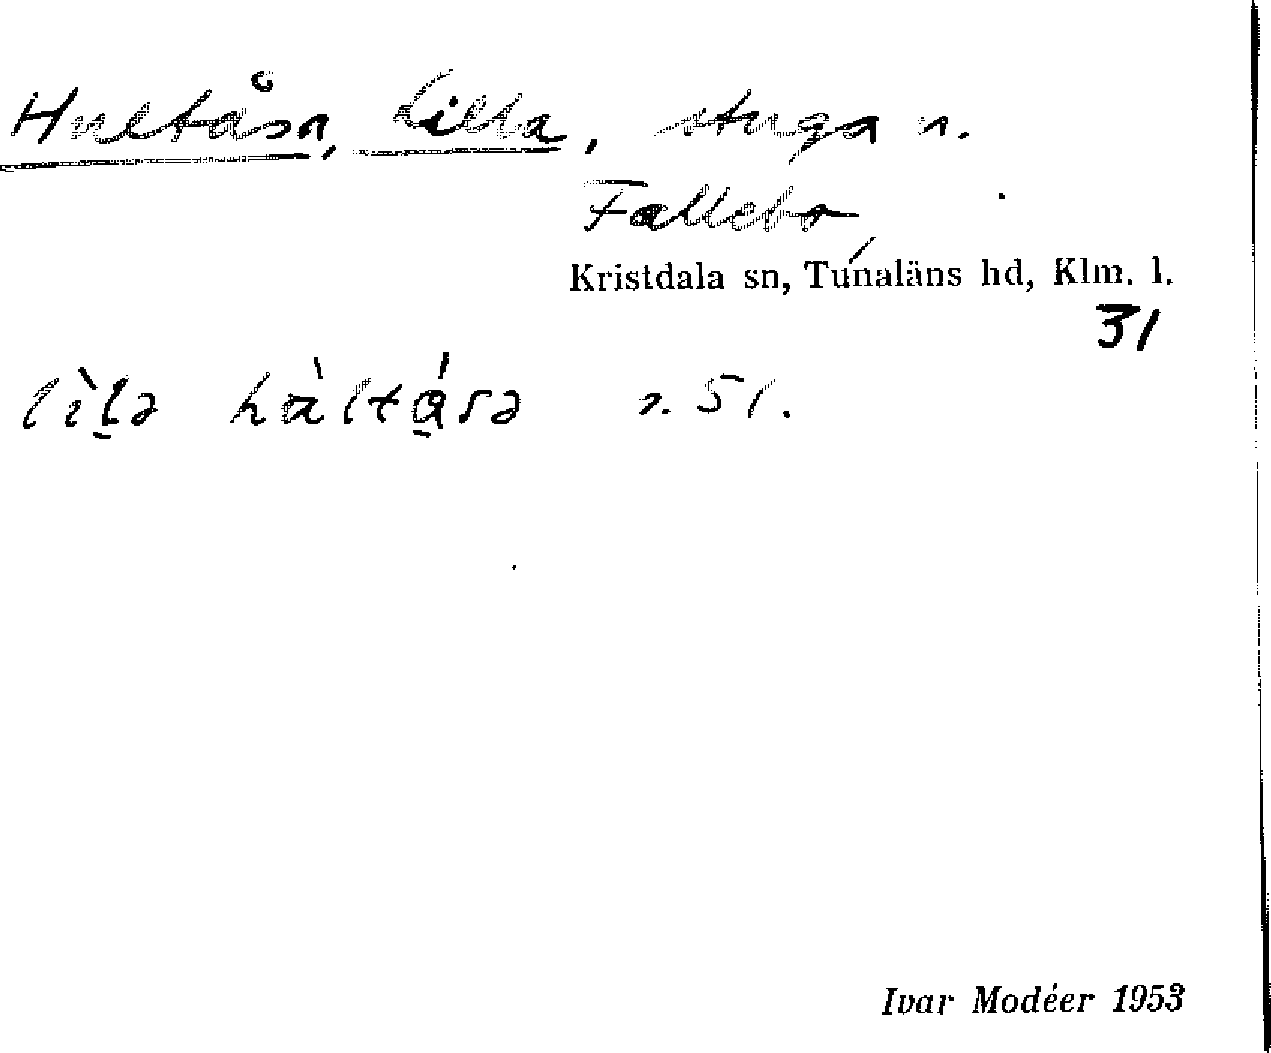 Hultåsa, Lilla, stuga n.
Fallebo,
Kristdala sn, Tunaläns hd, Klm. l.
31
s. 51.
Ivar Modéer 1953